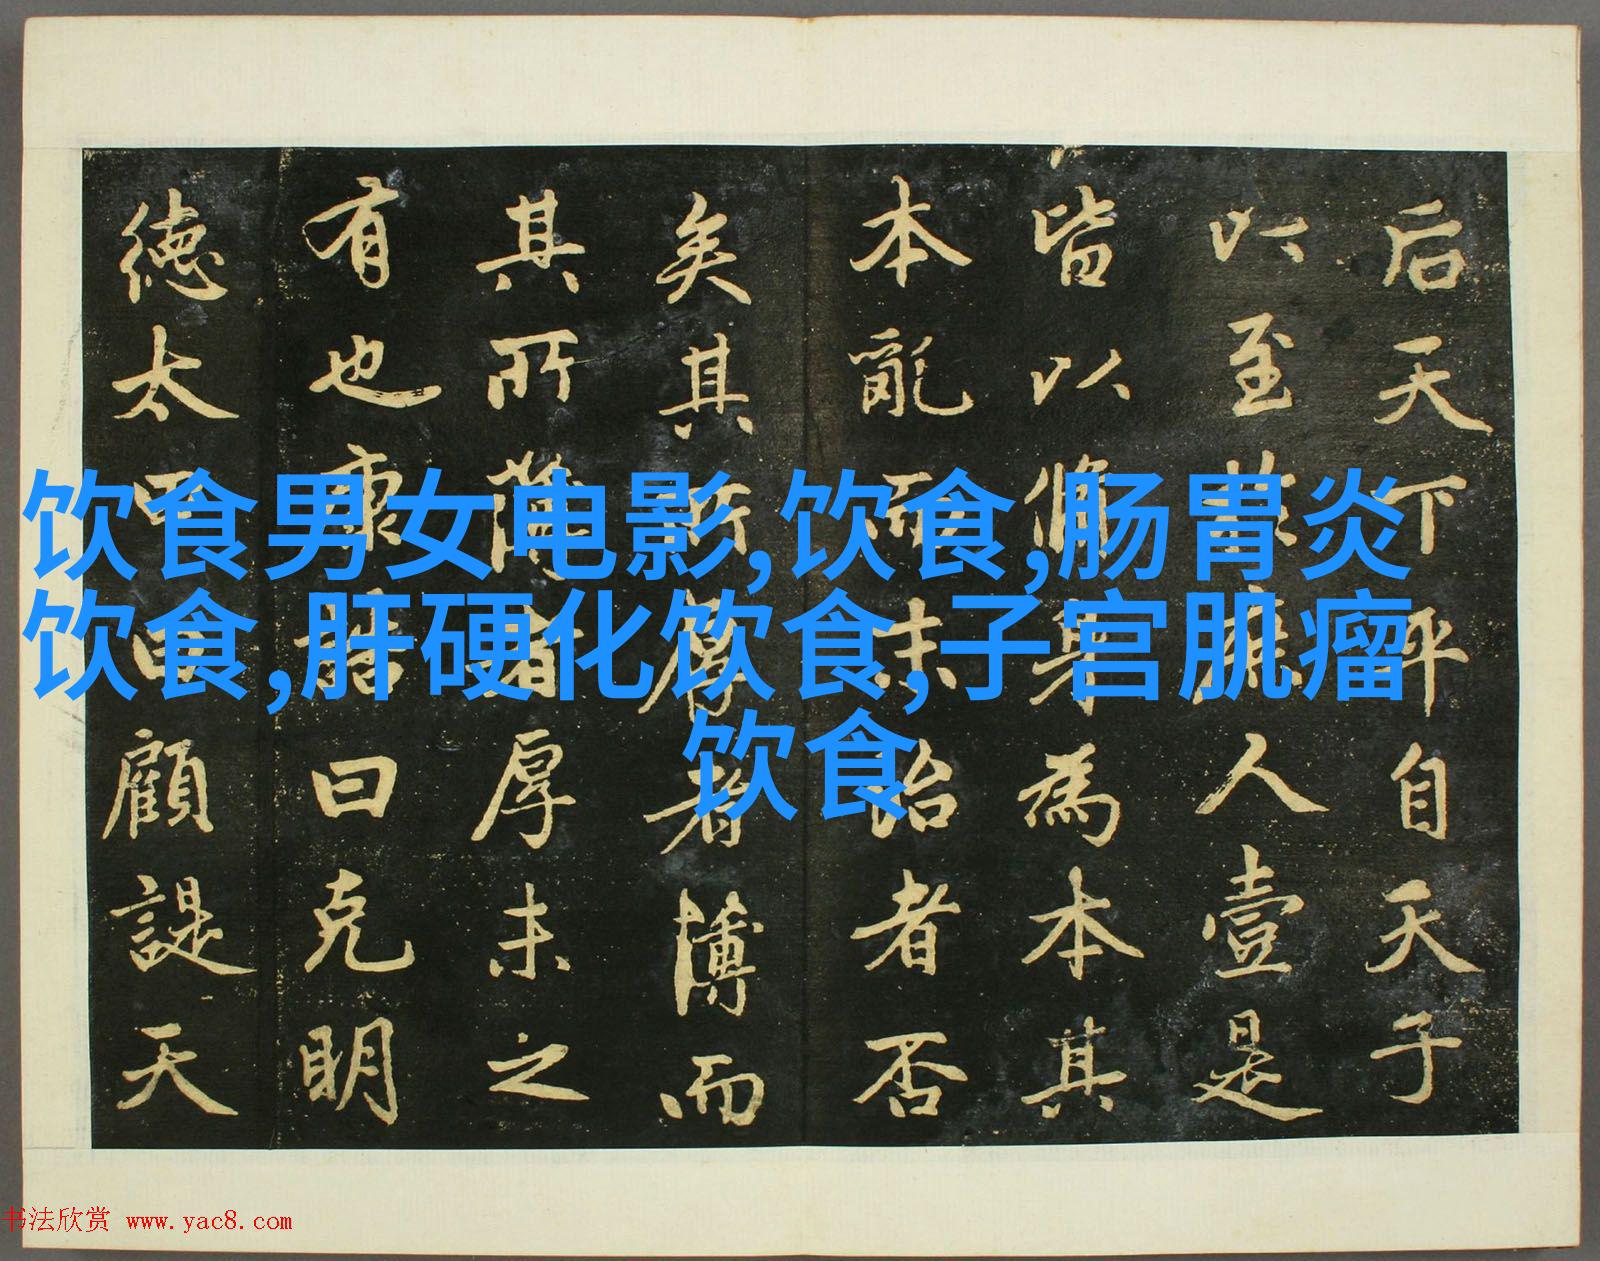 后天下平自天子
以至於庶人壹是
皆以脩身為本其
本亂而末治者否
矣其所厚者薄而
其所薄者厚未之
有也康誥曰克明
德太甲曰顧諟天
饮食男女电影,饮食,肠胃炎
饮食,肝硬化饮食,子宫肌瘤
饮食
书法欣赏 www.yac8.com